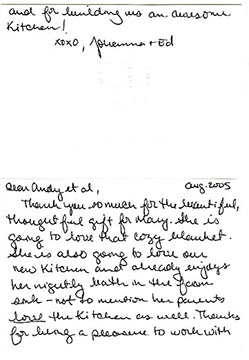 and for building us an awesome
Kitchen!
xoxo, Johanna + Ed
Dear Andy et al,
Aug. 2005
Thank you so much for the beautiful,
thoughtful gift for Mary. She is
going to love that cozy blanket.
She is also going to love our
new Kitchen and already enjoys
her nightly bath in the farm
sink - not to mention her parents
love the Kitchen as well. Thanks
for being a pleasure to work with